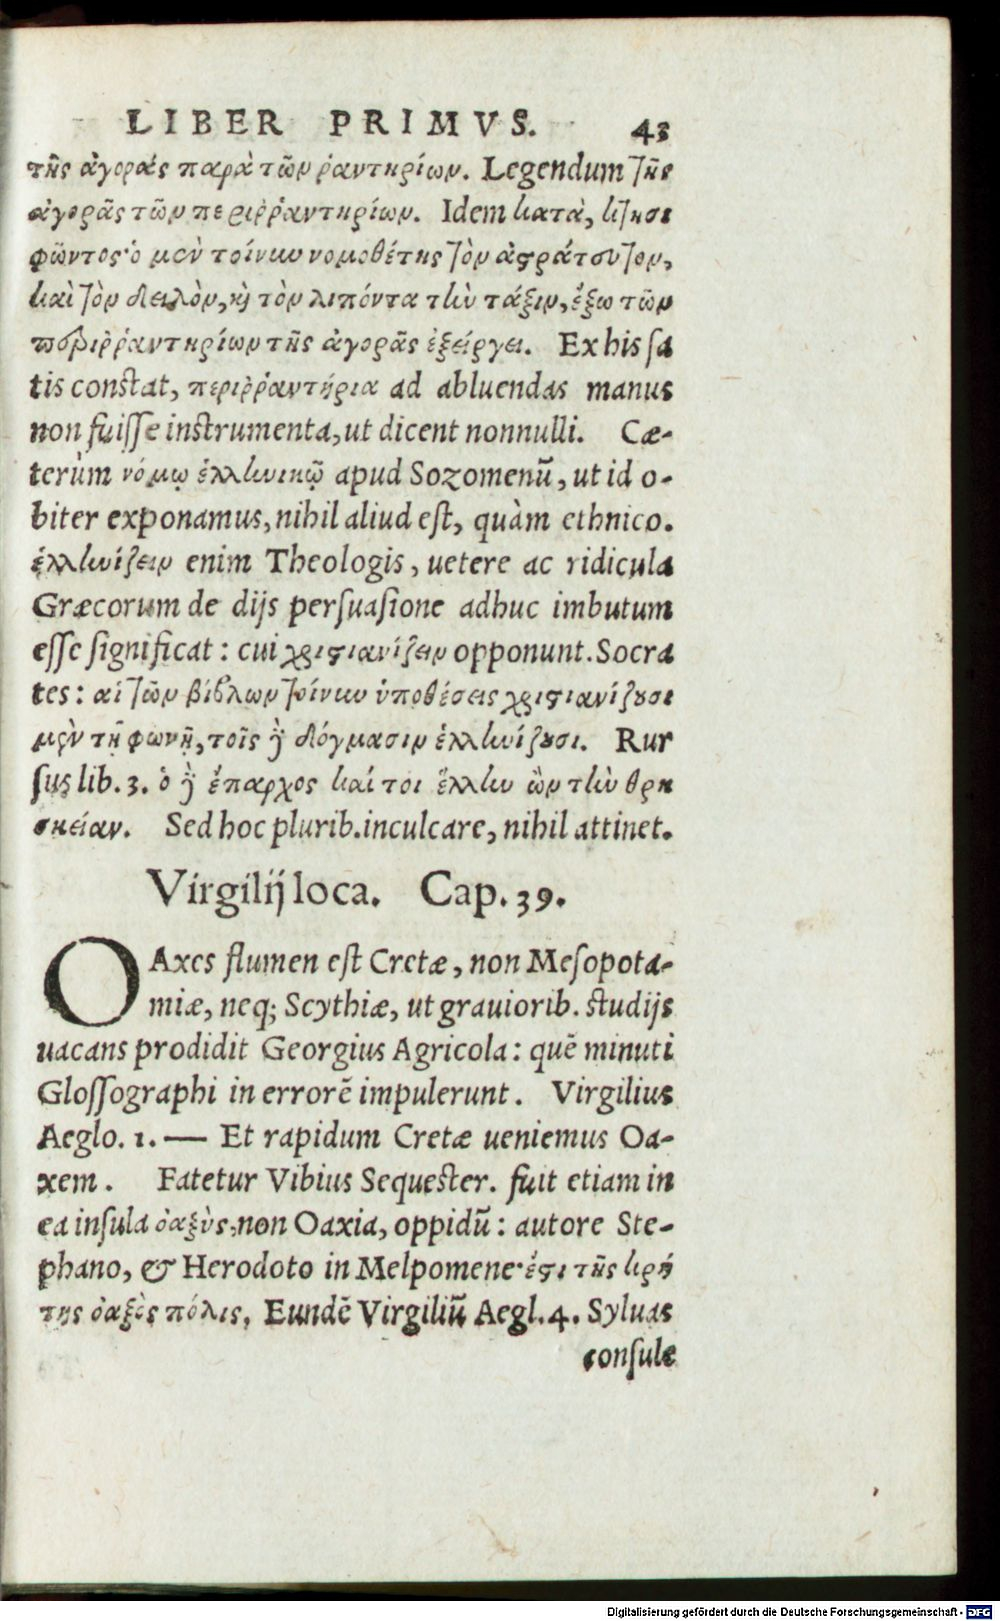 LIBER PRIMVS. 43
τῆς ἀγοράς παρὰ τῶν ῥαντηρίων. Legendum τῆς
ἀγορᾶς τῶν περιῤῥαντηρίων. Idem κατὰ κτησι
φῶντος· ὁ μὲν τοίνυν νομοθέτης τὸν ἀστράτευτον,
καὶ τὸν δειλὸν, καὶ τὸν λιπόντα τὴν τάξιν, ἔξω τῶν
περιῤῥαντηρίων τῆς ἀγορᾶς ἐξείργει. Ex his sa
tis constat, περιῤῥαντήρια ad abluendas manus
non fuisse instrumenta, ut dicent nonnulli. Cæ-
terùm νόμῳ ἑλληνικῷ apud Sozomenũ, ut id o-
biter exponamus, nihil aliud est, quàm ethnico.
ἑλληνίζειν enim Theologis, uetere ac ridicula
Græcorum de dijs persuasione adhuc imbutum
esse significat: cui χριστιανίζειν opponunt. Socra
tes: αἱ τῶν βίβλων τοίνυν ὑποθέσεις χριστιανίζουσι
μὲν τῇ φωνῇ, τοῖς δὲ δόγμασιν ἑλληνίζουσι. Rur
sus lib. 3. ὁ δὲ ἔπαρχος καίτοι ἕλλην ὢν τὴν θρη
σκείαν. Sed hoc plurib. inculcare, nihil attinet.
Virgilij loca. Cap. 39.
OAxes flumen est Cretæ, non Mesopota-
miæ, neq; Scythiæ, ut grauiorib. studijs
uacans prodidit Georgius Agricola: quẽ minuti
Glossographi in errorẽ impulerunt. Virgilius
Aeglo. 1. — Et rapidum Cretæ ueniemus Oa-
xem. Fatetur Vibius Sequester. fuit etiam in
ea insula ὀαξὺς, non Oaxia, oppidũ: autore Ste-
phano, & Herodoto in Melpomene· ἔστι τῆς κρή
της ὀαξὸς πόλις, Eundẽ Virgiliũ Aegl. 4. Syluas
consule
Digitalisierung gefördert durch die Deutsche Forschungsgemeinschaft - DFG